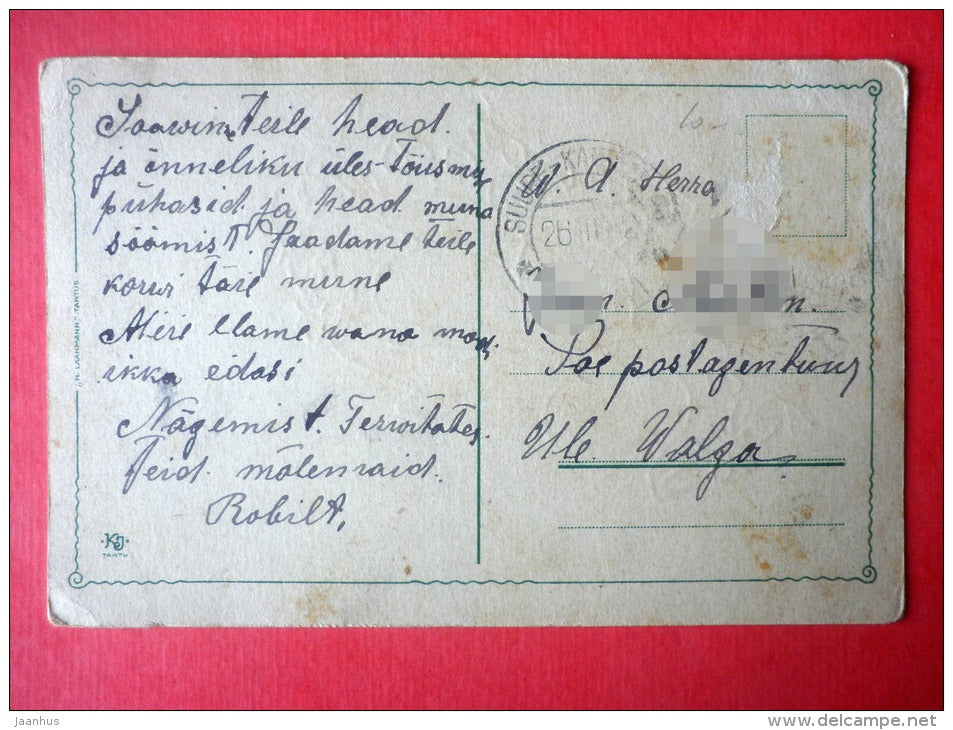 Soowin Teile head
ja õnneliku üles-tõusmis
pühasid ja head muna
söömist. Saadame teile
korwi täie mune
Meie elame wana moodi
ikka edasi
Nägemist. Terwitates
Teid mõlemaid.
Robilt.
"H. LAAKMANN" TARTUS.
KJ
TARTU
SUURE-
26 III
W. A. Herra
n.
Soe postagentuur
Üle Walga
Jaanhus
www.delcampe.net